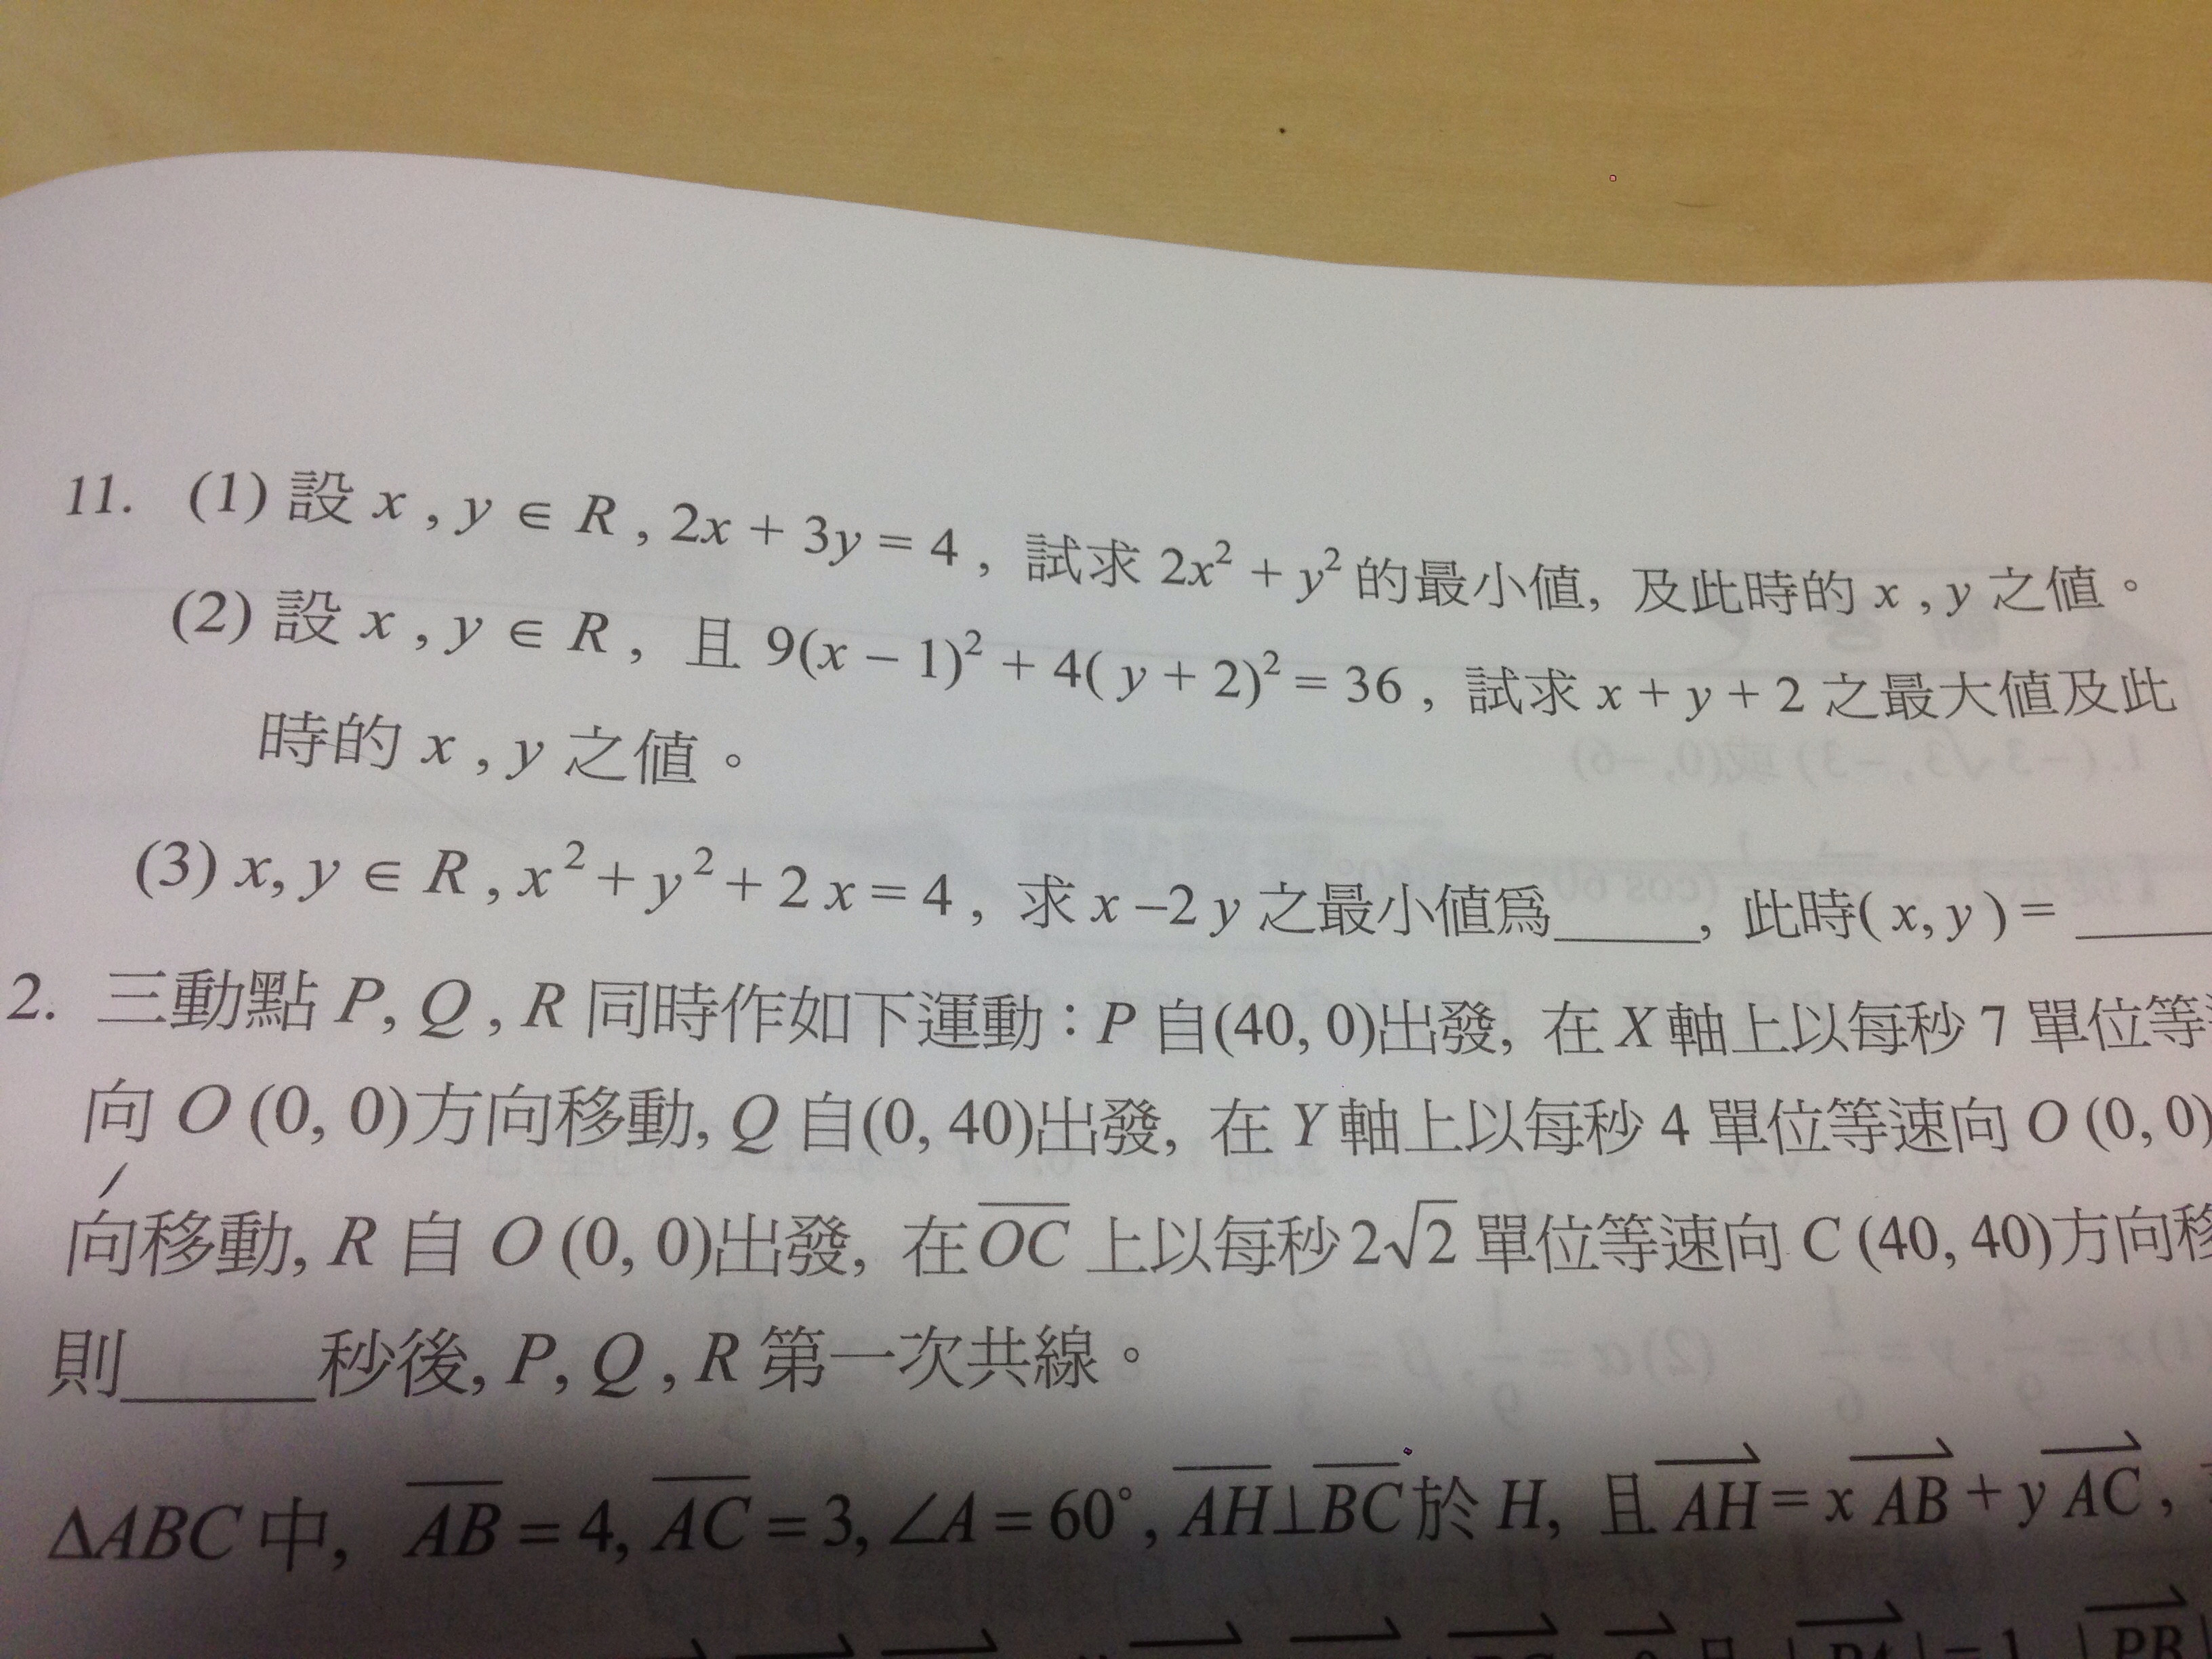 11. (1) 設 x , y ∈ R , 2x + 3y = 4 , 試求 2x² + y² 的最小值, 及此時的 x , y 之值。
(2) 設 x , y ∈ R , 且 9(x − 1)² + 4( y + 2)² = 36 , 試求 x + y + 2 之最大值及此
時的 x , y 之值。
(3) x, y ∈ R , x² + y² + 2 x = 4 , 求 x −2 y 之最小值爲_____, 此時( x, y ) = ____
2. 三動點 P, Q , R 同時作如下運動：P 自(40, 0)出發, 在 X 軸上以每秒 7 單位等
向 O (0, 0)方向移動, Q 自(0, 40)出發, 在 Y 軸上以每秒 4 單位等速向 O (0, 0)
向移動, R 自 O (0, 0)出發, 在 \overline{OC} 上以每秒 2√2 單位等速向 C (40, 40)方向移
則______秒後, P, Q , R 第一次共線。
ΔABC 中, \overline{AB} = 4, \overline{AC} = 3, ∠A = 60°, \overline{AH}⊥\overline{BC} 於 H, 且 \overrightarrow{AH} = x \overrightarrow{AB} + y \overrightarrow{AC} ,